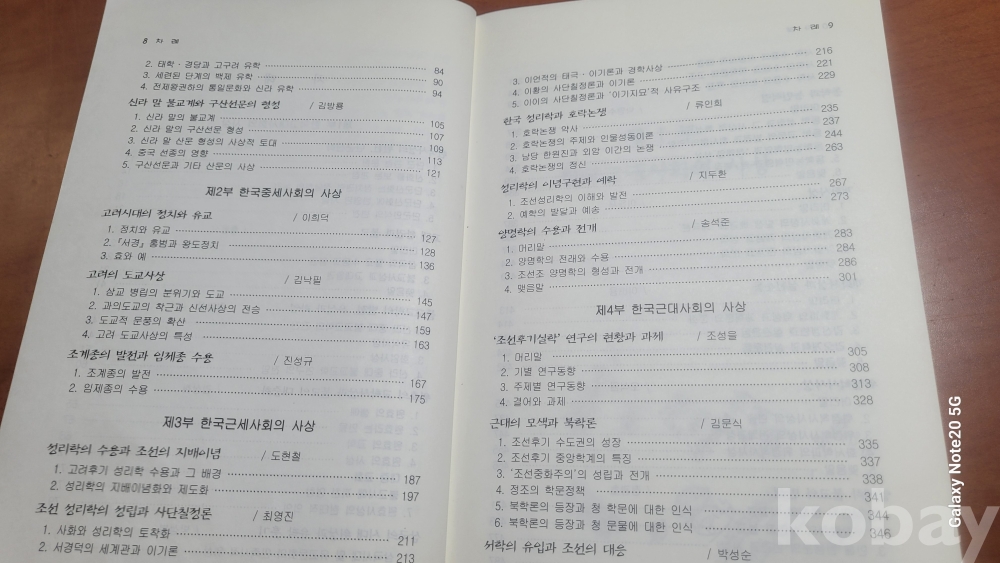 8 차 례
2. 태학·경당과 고구려 유학 84
3. 세련된 단계의 백제 유학 90
4. 전제왕권하의 통일문화와 신라 유학 94
신라 말 불교계와 구산선문의 형성 / 김방룡
1. 신라 말의 불교계 105
2. 신라 말의 구산선문 형성 107
3. 신라 말 산문 형성의 사상적 토대 109
4. 중국 선종의 영향 113
5. 구산선문과 기타 산문의 사상 121
제2부 한국중세사회의 사상
고려시대의 정치와 유교 / 이희덕
1. 정치와 유교 127
2. 『서경』 홍범과 왕도정치 128
3. 효와 예 136
고려의 도교사상 / 김낙필
1. 삼교 병립의 분위기와 도교 145
2. 과의도교의 착근과 신선사상의 전승 147
3. 도교적 문풍의 확산 159
4. 고려 도교사상의 특성 163
조계종의 발전과 임제종 수용 / 진성규
1. 조계종의 발전 167
2. 임제종의 수용 175
제3부 한국근세사회의 사상
성리학의 수용과 조선의 지배이념 / 도현철
1. 고려후기 성리학 수용과 그 배경 187
2. 성리학의 지배이념화와 제도화 197
조선 성리학의 성립과 사단칠정론 / 최영진
1. 사화와 성리학의 토착화 211
2. 서경덕의 세계관과 이기론 213
차 례 9
3. 이언적의 태극·이기론과 경학사상 216
4. 이황의 사단칠정론과 이기론 221
5. 이이의 사단칠정론과 '이기지묘'적 사유구조 229
한국 성리학과 호락논쟁 / 류인희
1. 호락논쟁 약사 235
2. 호락논쟁의 주제와 인물성동이론 237
3. 남당 한원진과 외암 이간의 논쟁 244
4. 호락논쟁의 정신 263
성리학의 이념구현과 예학 / 지두환
1. 조선성리학의 이해와 발전 267
2. 예학의 발달과 예송 273
양명학의 수용과 전개 / 송석준
1. 머리말 283
2. 양명학의 전래와 수용 284
3. 조선조 양명학의 형성과 전개 286
4. 맺음말 301
제4부 한국근대사회의 사상
'조선후기실학' 연구의 현황과 과제 / 조성을
1. 머리말 305
2. 기별 연구동향 308
3. 주제별 연구동향 313
4. 결어와 과제 328
근대의 모색과 북학론 / 김문식
1. 조선후기 수도권의 성장 335
2. 조선후기 중앙학계의 특징 337
3. '조선중화주의'의 성립과 전개 338
4. 정조의 학문정책 341
5. 북학론의 등장과 청 학문에 대한 인식 344
6. 북학론의 등장과 청 문물에 대한 인식 346
서학의 유입과 조선의 대응 / 박성순
kobay
Galaxy Note20 5G